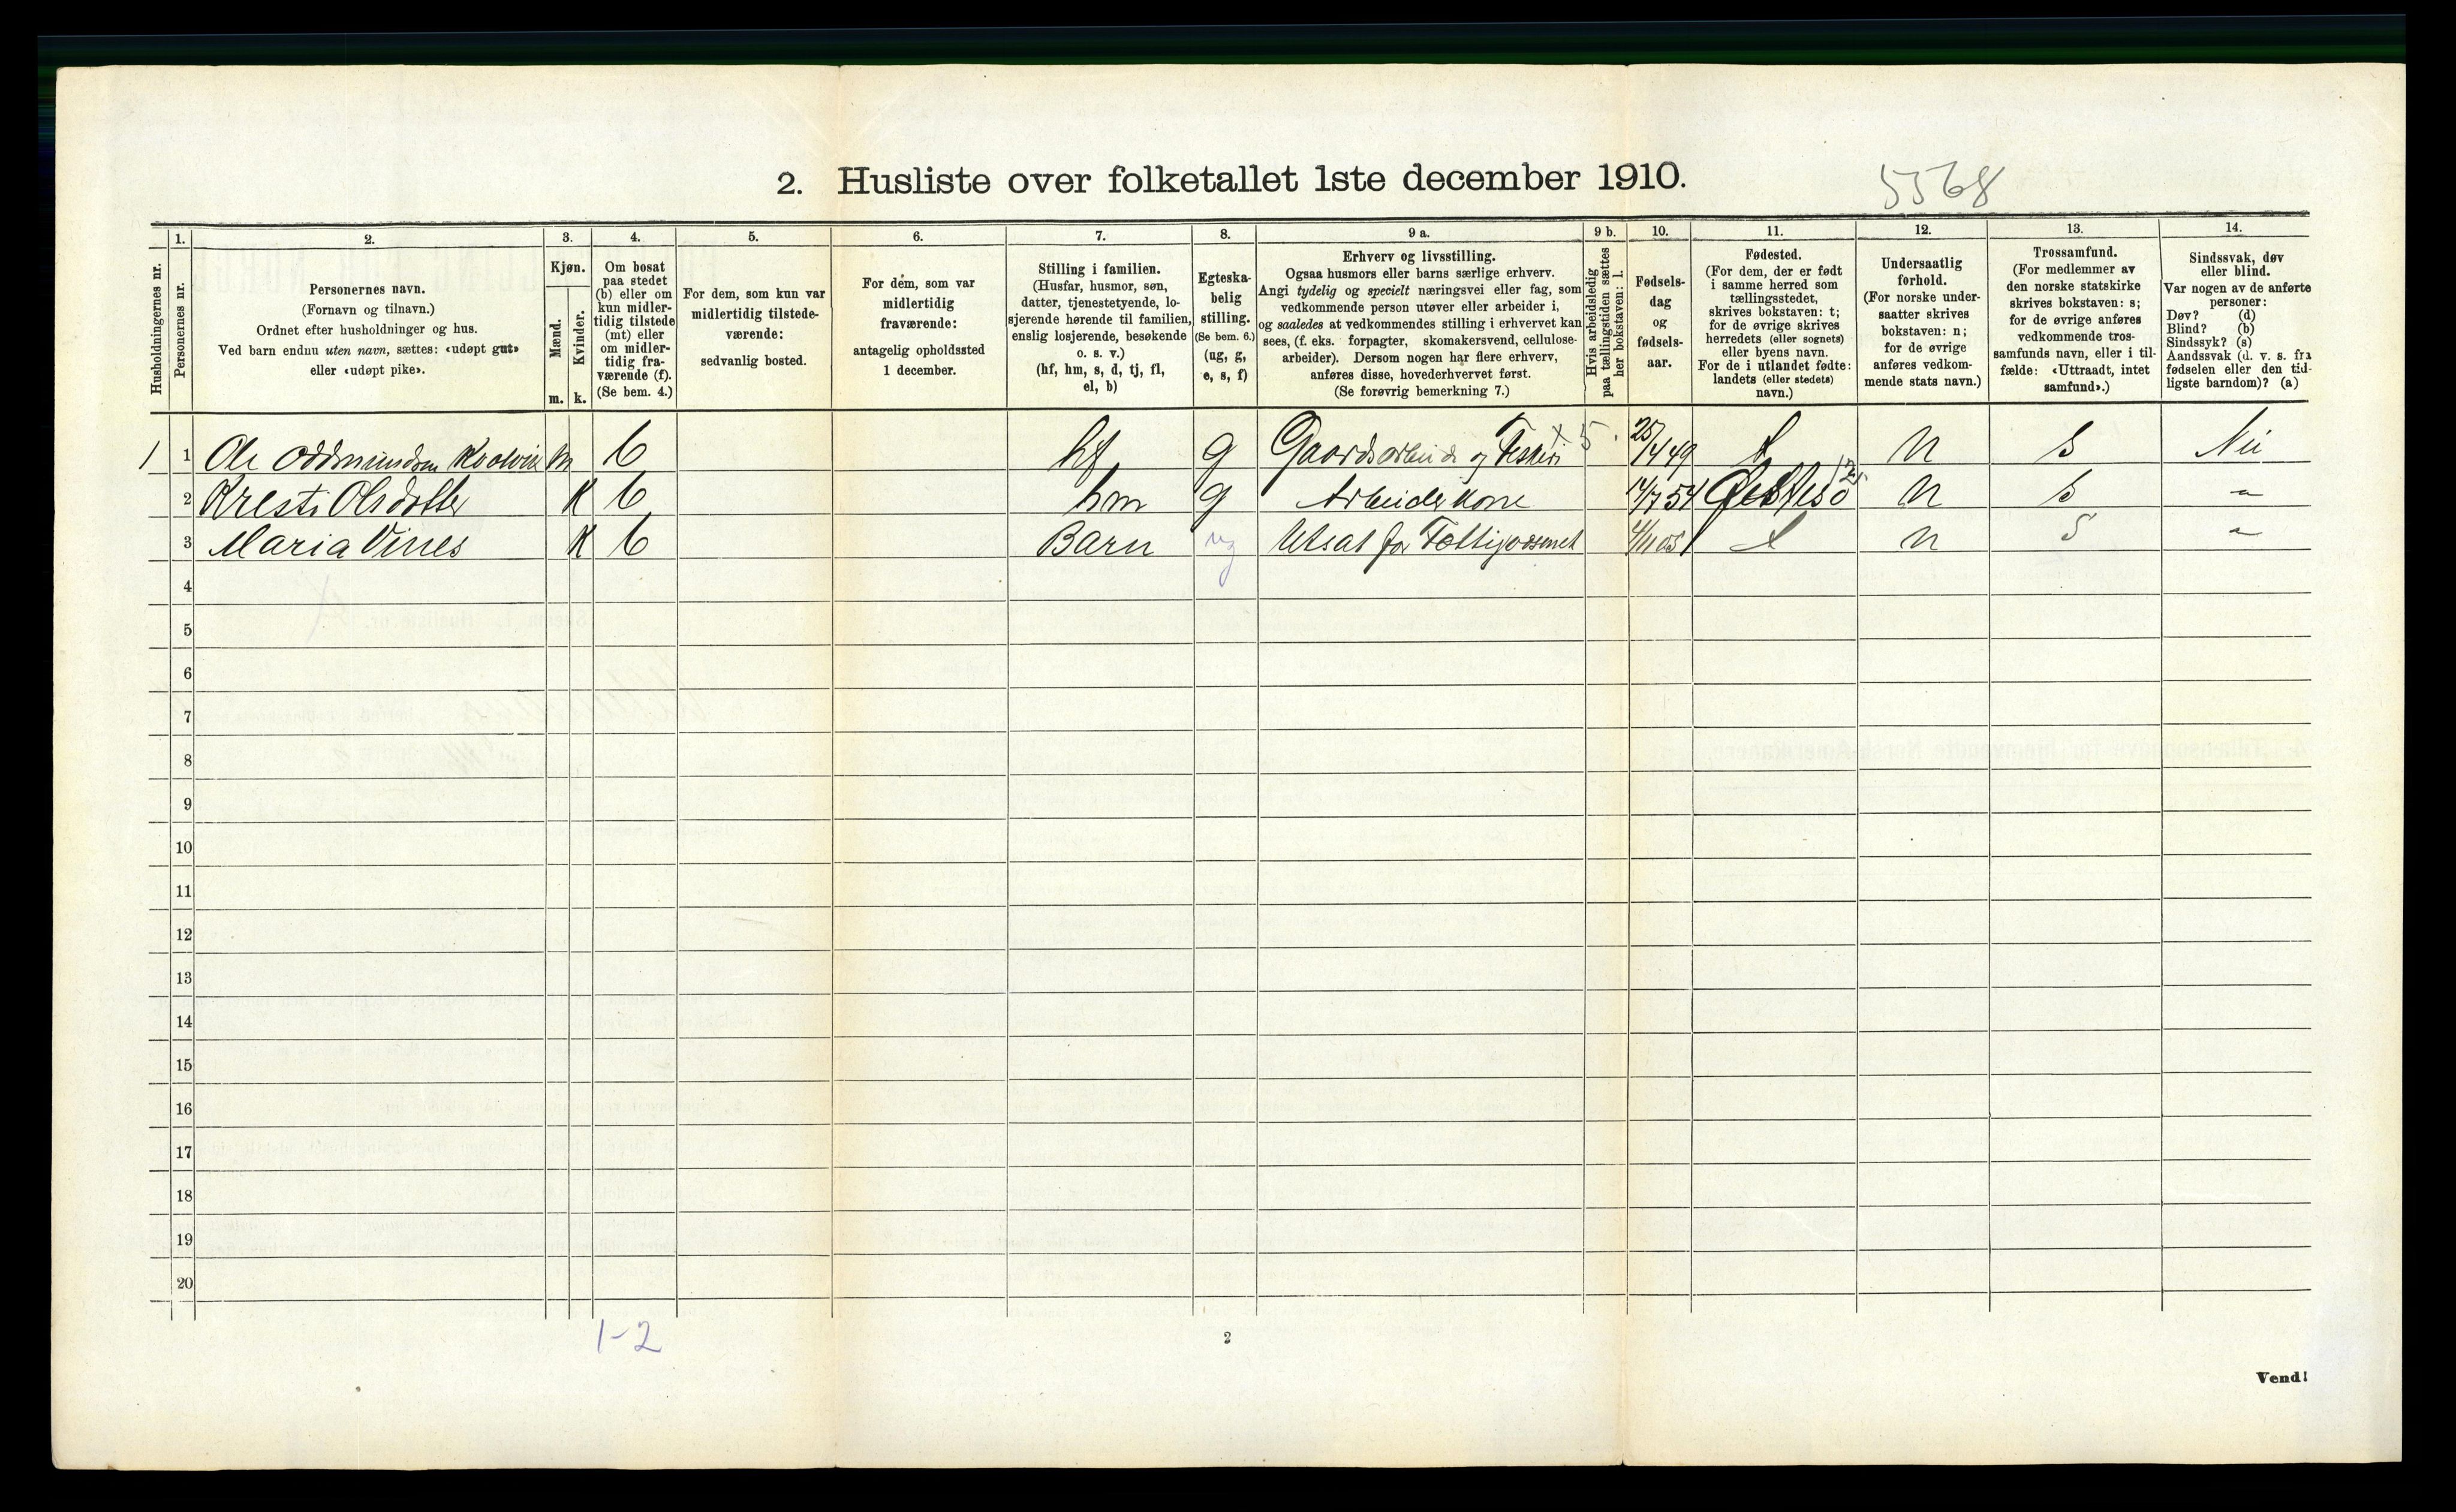 2. Husliste over folketallet 1ste december 1910.
5568
Husholdningernes nr.
1.
Personernes nr.
2.
Personernes navn.
(Fornavn og tilnavn.)
Ordnet efter husholdninger og hus.
Ved barn endnu uten navn, sættes: «udøpt gut»
eller «udøpt pike».
3.
Kjøn.
Mænd.
Kvinder.
m.
k.
4.
Om bosat
paa stedet
(b) eller om
kun midler-
tidig tilstede
(mt) eller
om midler-
tidig fra-
værende (f).
(Se bem. 4.)
5.
For dem, som kun var
midlertidig tilstede-
værende:
sedvanlig bosted.
6.
For dem, som var
midlertidig
fraværende:
antagelig opholdssted
1 december.
7.
Stilling i familien.
(Husfar, husmor, søn,
datter, tjenestetyende, lo-
sjerende hørende til familien,
enslig losjerende, besøkende
o. s. v.)
(hf, hm, s, d, tj, fl,
el, b)
8.
Egteska-
belig
stilling.
(Se bem. 6.)
(ug, g,
e, s, f)
9 a.
Erhverv og livsstilling.
Ogsaa husmors eller barns særlige erhverv.
Angi tydelig og specielt næringsvei eller fag, som
vedkommende person utøver eller arbeider i,
og saaledes at vedkommendes stilling i erhvervet kan
sees, (f. eks. forpagter, skomakersvend, cellulose-
arbeider). Dersom nogen har flere erhverv,
anføres disse, hovederhvervet først.
(Se forøvrig bemerkning 7.)
9 b.
Hvis arbeidsledig
paa tællingstiden sættes
her bokstaven: l.
10.
Fødsels-
dag
og
fødsels-
aar.
11.
Fødested.
(For dem, der er født
i samme herred som
tællingsstedet,
skrives bokstaven: t;
for de øvrige skrives
herredets (eller sognets)
eller byens navn.
For de i utlandet fødte:
landets (eller stedets)
navn.)
12.
Undersaatlig
forhold.
(For norske under-
saatter skrives
bokstaven: n;
for de øvrige
anføres vedkom-
mende stats navn.)
13.
Trossamfund.
(For medlemmer av
den norske statskirke
skrives bokstaven: s;
for de øvrige anføres
vedkommende tros-
samfunds navn, eller i til-
fælde: «Uttraadt, intet
samfund».)
14.
Sindssvak, døv
eller blind.
Var nogen av de anførte
personer:
Døv? (d)
Blind? (b)
Sindssyk? (s)
Aandssvak (d. v. s. fra
fødselen eller den tid-
ligste barndom)? (a)
1 1 Ole Oddmundsen m b hf g Gaardsarbeide og Fiskeri x 5. 25/4 49 t n s Nei
2 Kresti Olsdatter K b hm g Arbeiderkone 14/7 54 n s "
3 Maria Vines K b Barn ug Utsat for Fattigvæsenet 4/11 05 t n S "
4
5
6
7
8
9
10
11
12
13
14
15
16
17
18
19
20
1-2
2
Vend!